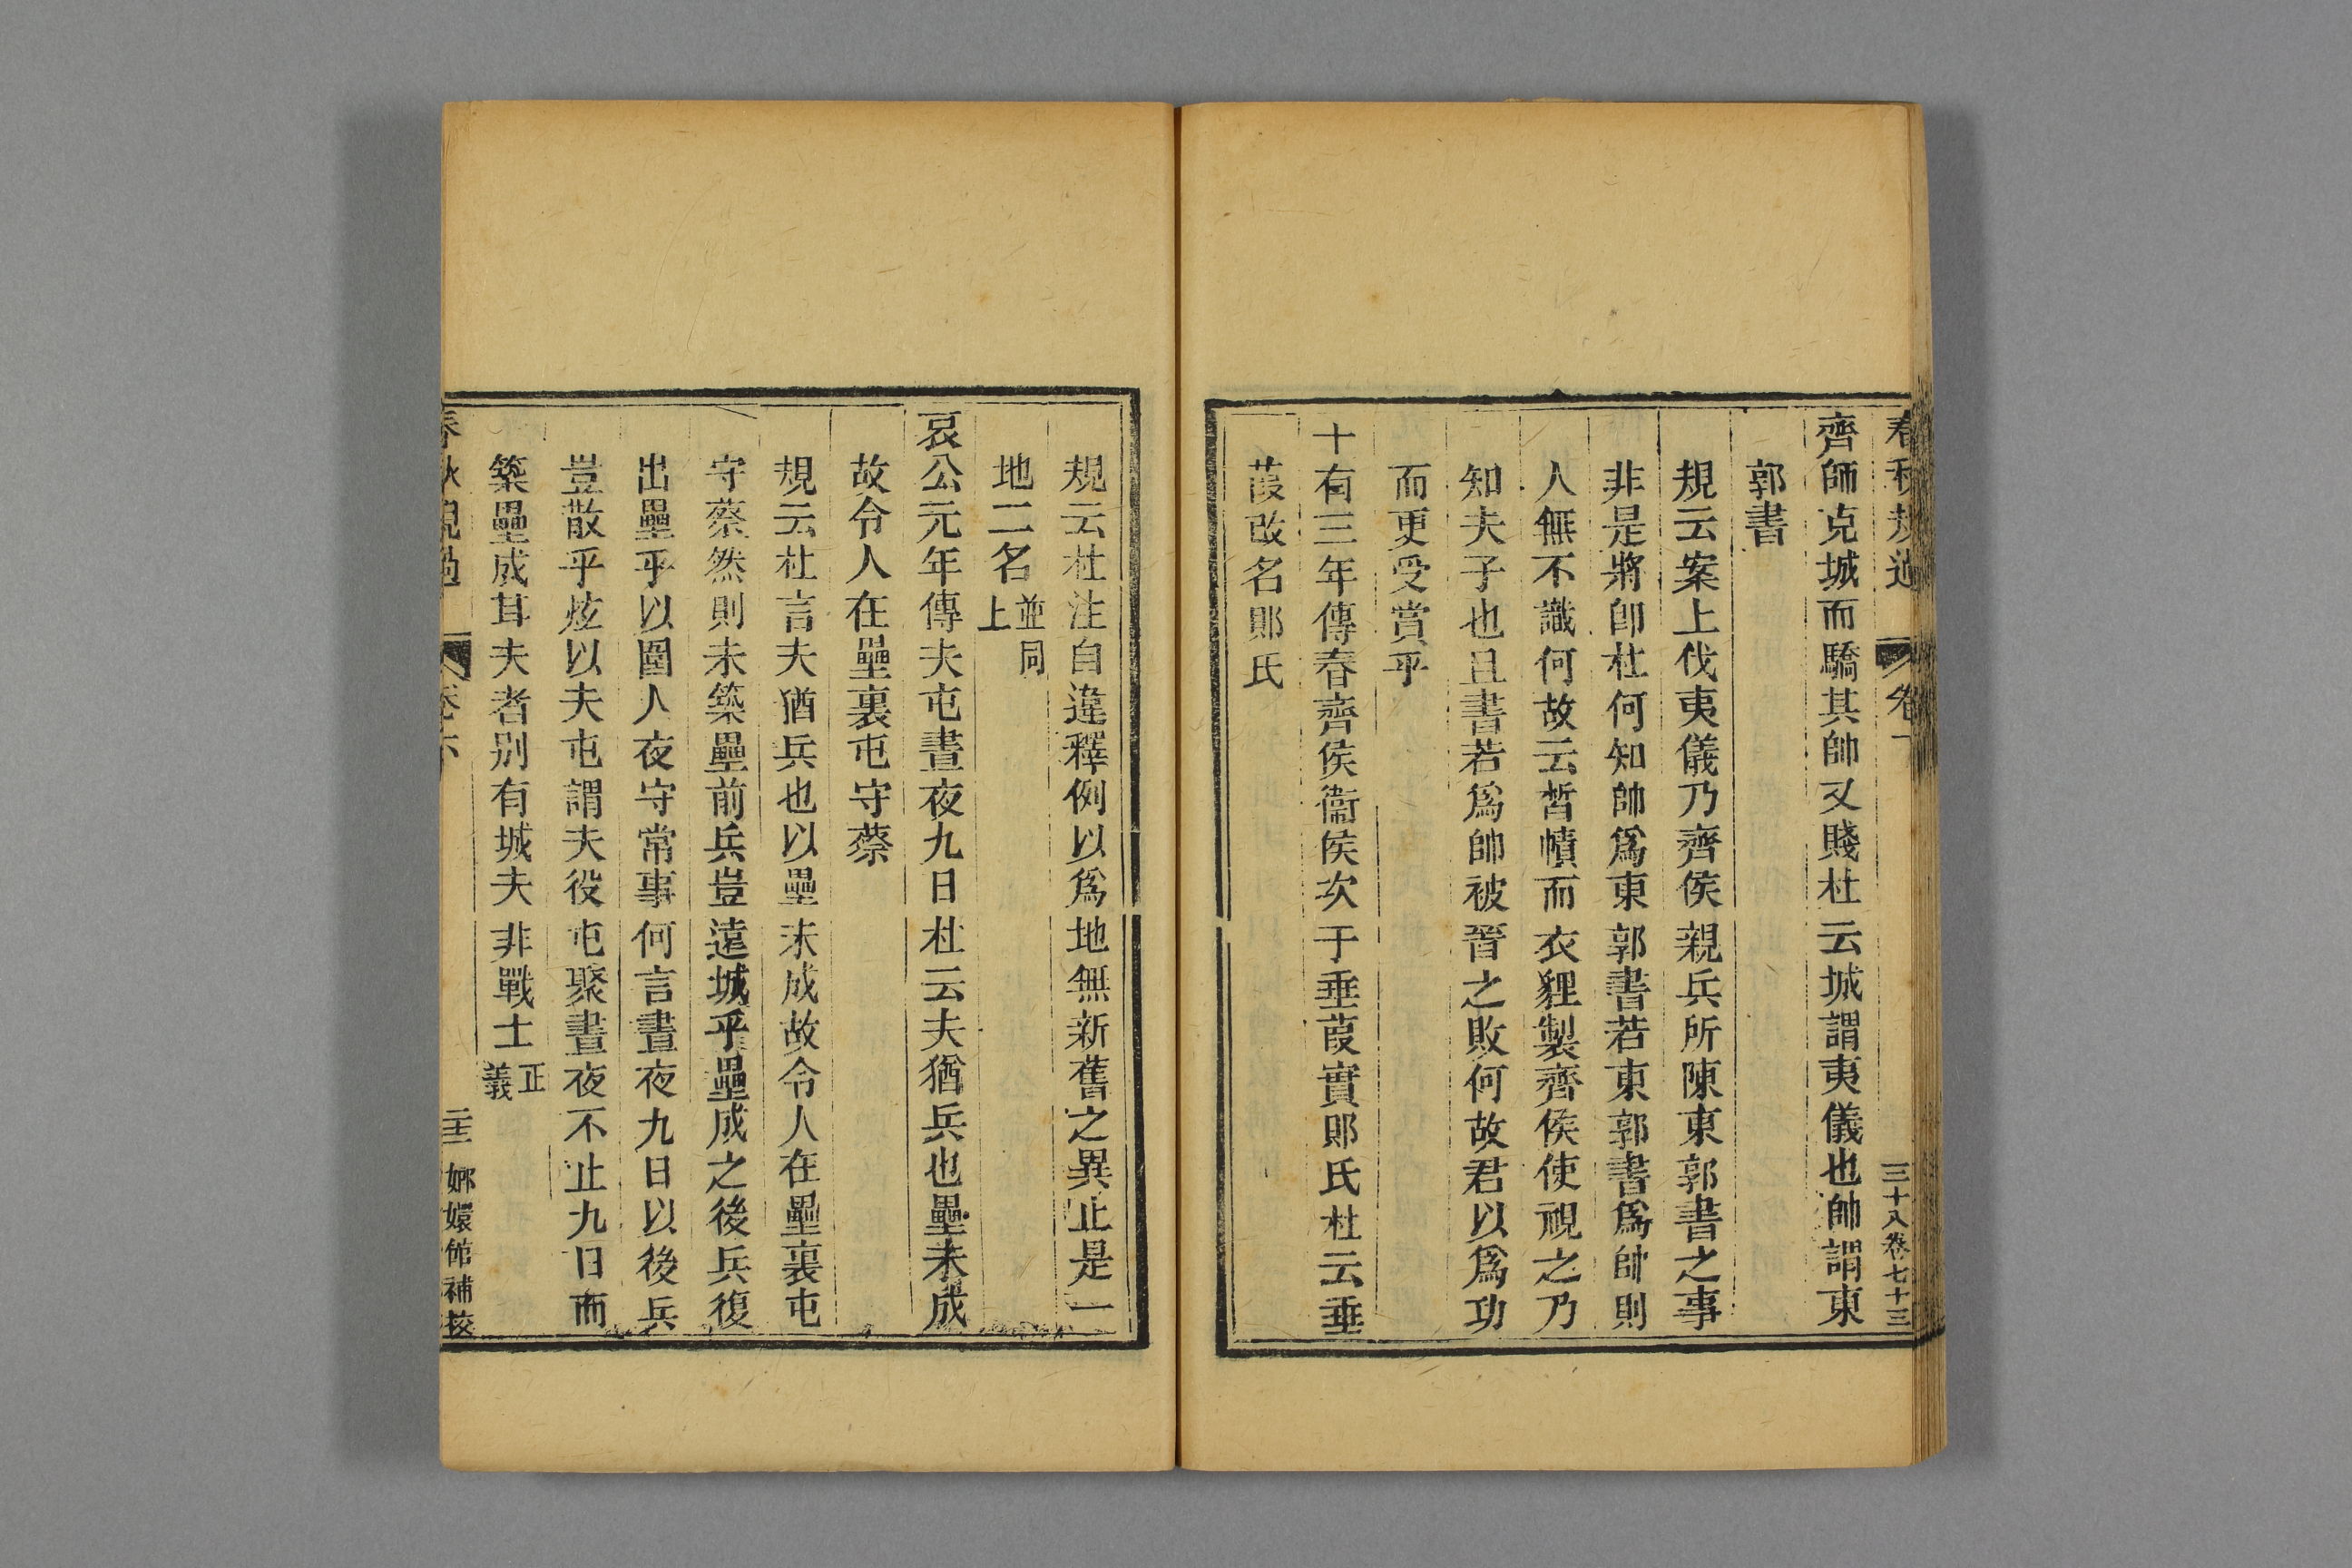 春秋規過 卷 三十八卷七十三
齊師克城而驕其帥又賤杜云城謂夷儀也帥謂東
郭書
規云案上伐夷儀乃齊侯親兵所陳東郭書之事
非是將卽杜何知帥爲東郭書若東郭書爲帥則
人無不識何故云晳幘而衣貍製齊侯使視之乃
知夫子也且書若爲帥被晉之敗何故君以爲功
而更受賞乎
十有三年傳春齊侯衞侯次于垂葭實郹氏杜云垂
葭改名郹氏
規云杜注自違釋例以爲地無新舊之異止是一
地二名並同上
哀公元年傳夫屯晝夜九日杜云夫猶兵也壘未成
故令人在壘裏屯守蔡
規云杜言夫猶兵也以壘未成故令人在壘裏屯
守蔡然則未築壘前兵豈遠城乎壘成之後兵復
出壘乎以圍人夜守常事何言晝夜九日以後兵
豈散乎炫以夫屯謂夫役屯聚晝夜不止九日而
築壘成耳夫者別有城夫非戰士正義
春秋規過 卷六 嫏嬛館補校